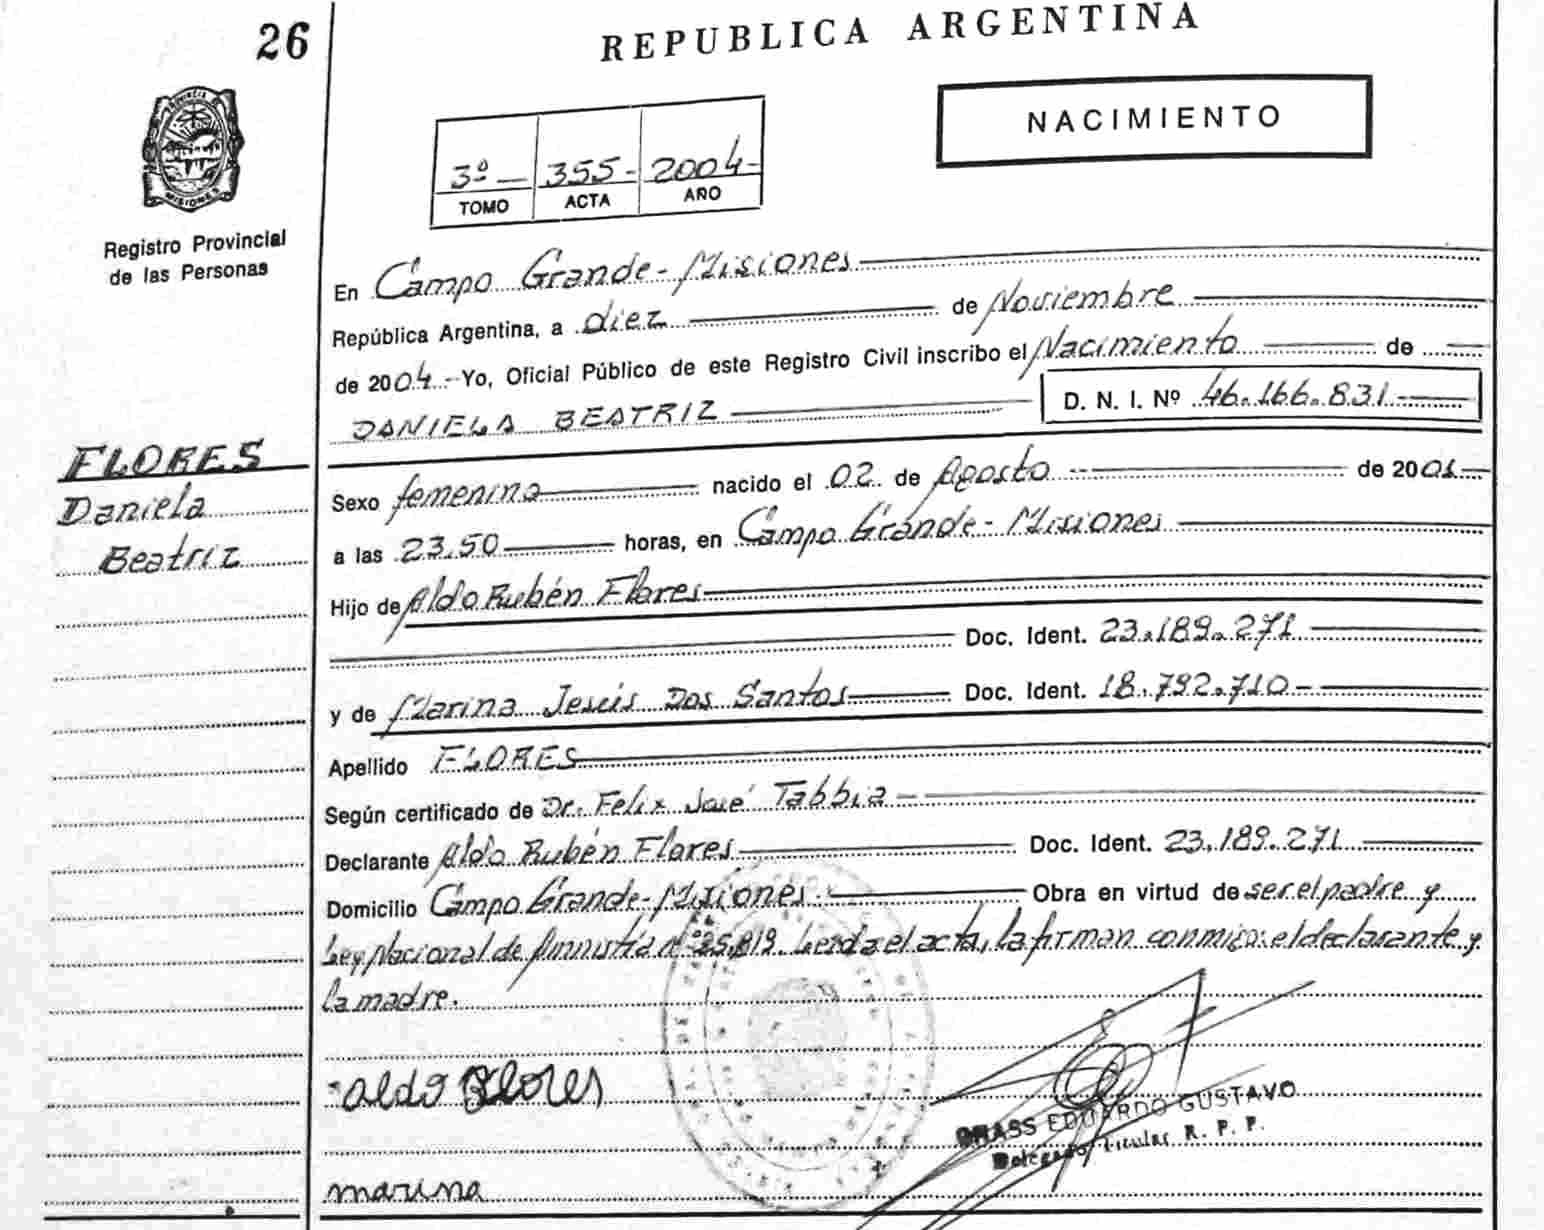 26
REPUBLICA ARGENTINA
PROVINCIA DE
MISIONES
Registro Provincial
de las Personas
NACIMIENTO
3º 355- 2004-
TOMO ACTA AÑO
En Campo Grande - Misiones
República Argentina, a diez de Noviembre
de 2004.- Yo, Oficial Público de este Registro Civil inscribo el Nacimiento de
DANIELA BEATRIZ D. N. I. Nº 46.166.831.-
FLORES
Daniela
Beatriz
Sexo femenino nacido el 02 de Agosto de 2001
a las 23.50 horas, en Campo Grande - Misiones
Hijo de Aldo Rubén Flores
Doc. Ident. 23.189.271
y de Marina Jesús Dos Santos Doc. Ident. 18.792.710-
Apellido FLORES
Según certificado de Dr. Felix José Tabbia -
Declarante Aldo Rubén Flores Doc. Ident. 23.189.271
Domicilio Campo Grande - Misiones. Obra en virtud de ser el padre y
Ley Nacional de Amnistía nº 25.819. Leída el acta, la firman conmigo: el declarante y
la madre.
aldo Flores
EDUARDO GUSTAVO
Delegado Titular R. P. P.
marina